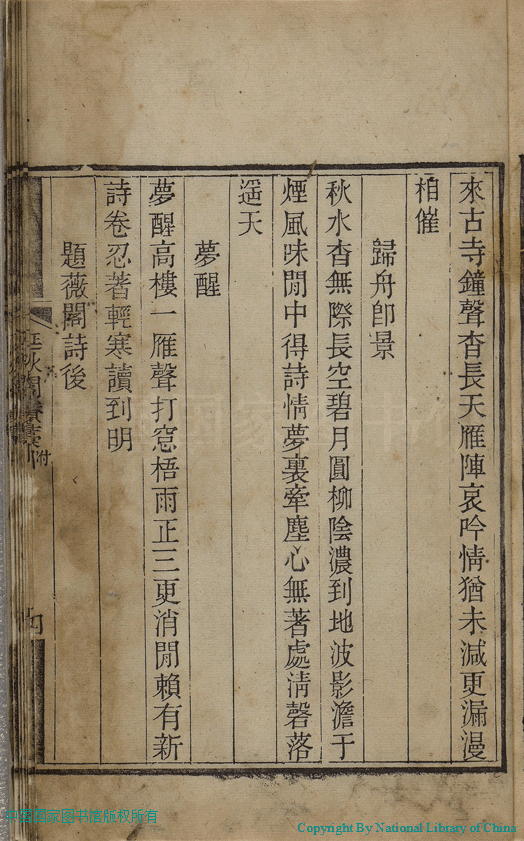 來古寺鐘聲杳長天雁陣哀吟情猶未減更漏漫
相催
歸舟卽景
秋水杳無際長空碧月圓柳陰濃到地波影澹于
煙風味閒中得詩情夢裏牽塵心無著處淸磬落
遥天
夢醒
夢醒高樓一雁聲打窓梧雨正三更消閒賴有新
詩卷忍著輕寒讀到明
題薇閣詩後
附
四
中国国家图书馆版权所有
Copyright By National Library of China